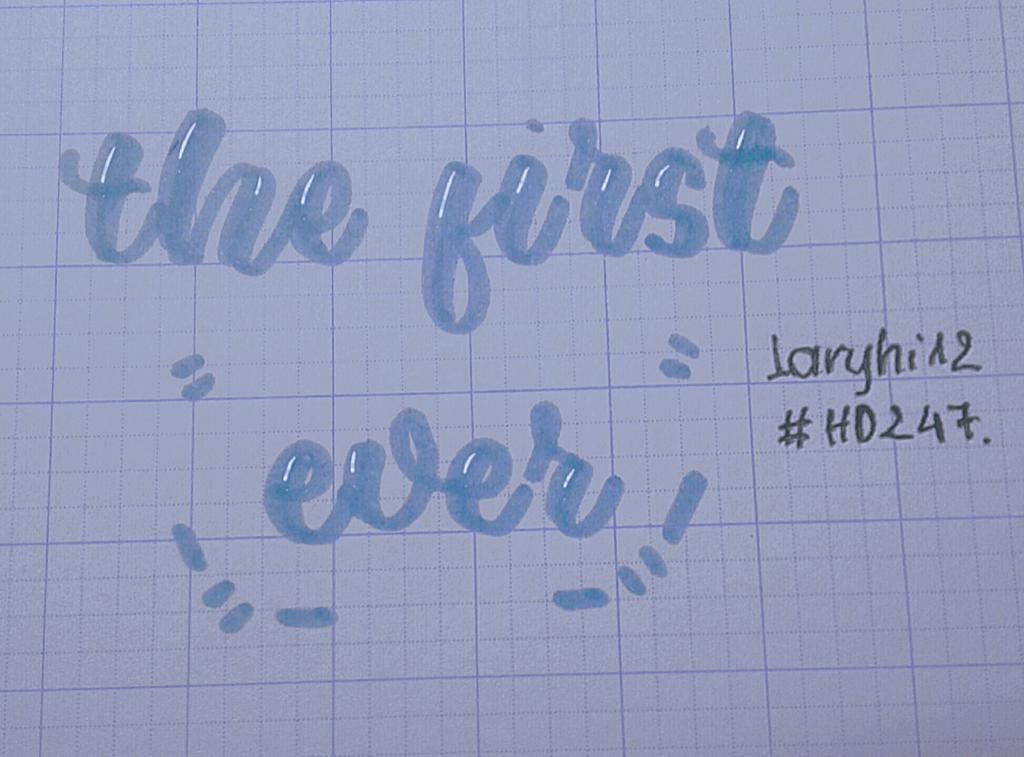 the first
ever
Jaryhi12
#HD247.